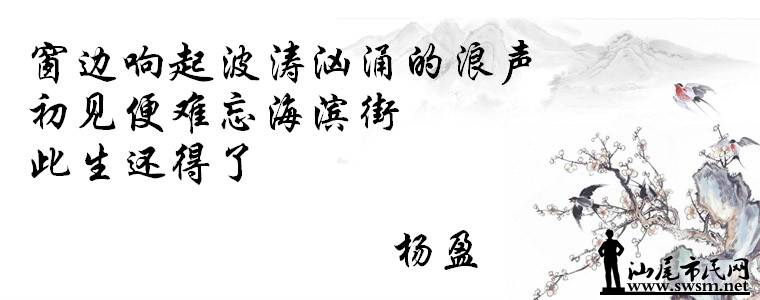 窗边响起波涛汹涌的浪声
初见便难忘海滨街
此生还得了
杨盈
汕尾市民网
www.swsm.net